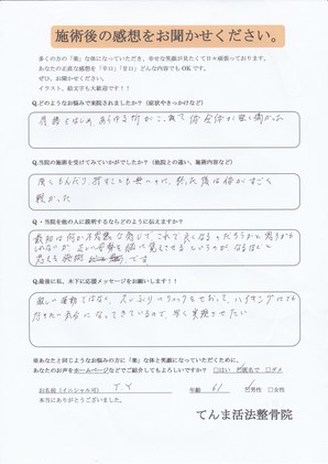 施術後の感想をお聞かせください。
多くの方の「楽」な体になっていただき、幸せな笑顔が見たくて日々頑張っております。
あなたの正直な感想を「辛口」「甘口」どんな内容でもOKです。
ぜひ、お聞かせください。
イラスト、絵文字も大歓迎です！！
Q.どのようなお悩みで来院されましたか？（症状やきっかけなど）
腰をはじめ、あらゆる所がこって体全体が重く痛かった
Q.当院の施術を受けてみていかがでしたか？（他院との違い、施術内容など）
強くもんだり、押すことも無いのに、終った後は体がすごく
軽かった
Q.・当院を他の人に説明するならどのように伝えますか？
最初は何か不思議な感じで、これで良くなるのだろうかと思うかも
しれないが、正しい姿勢を脳に覚えさせるというのがなるほど
と思える施術 です
Q.最後に私、木下に応援メッセージをお願いします！！
激しい運動ではなく、久しぶりにリュックをせおって、ハイキングにでも
行きたい気分になってきているので、早く実現させたい
※あなたと同じようなお悩みの方に「楽」な体と笑顔になっていただくために、
あなたのお声をホームページなどでご紹介してもよろしいですか？ □はい □匿名で □ダメ
お名前（イニシャル可） T.Y 年齢 61 □男性 □女性
本当にありがとうございました。
てんま活法整骨院